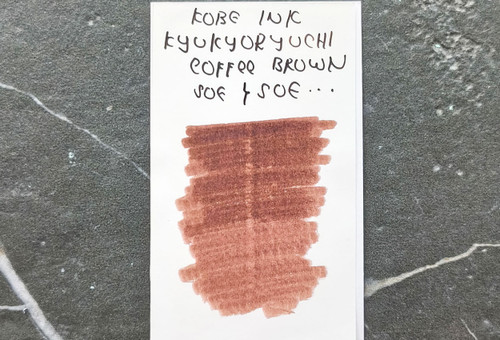 KOBE INK
KYUKYORYUCHI
COFFEE BROWN
SOE & SOE...